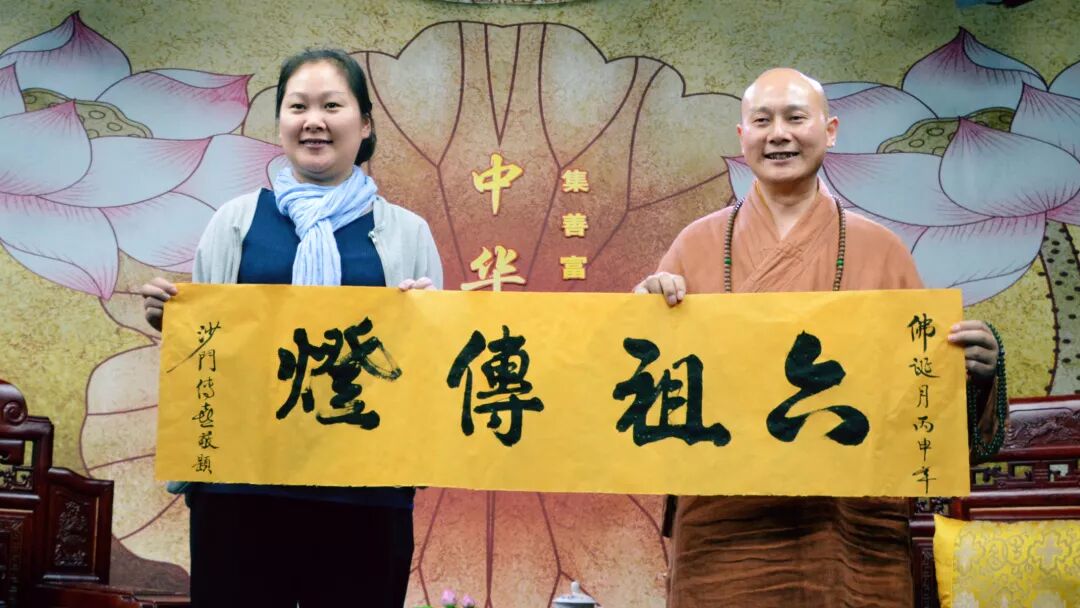 中华
集善富
佛誕月丙申年
六祖傳燈
沙門傳喜敬題